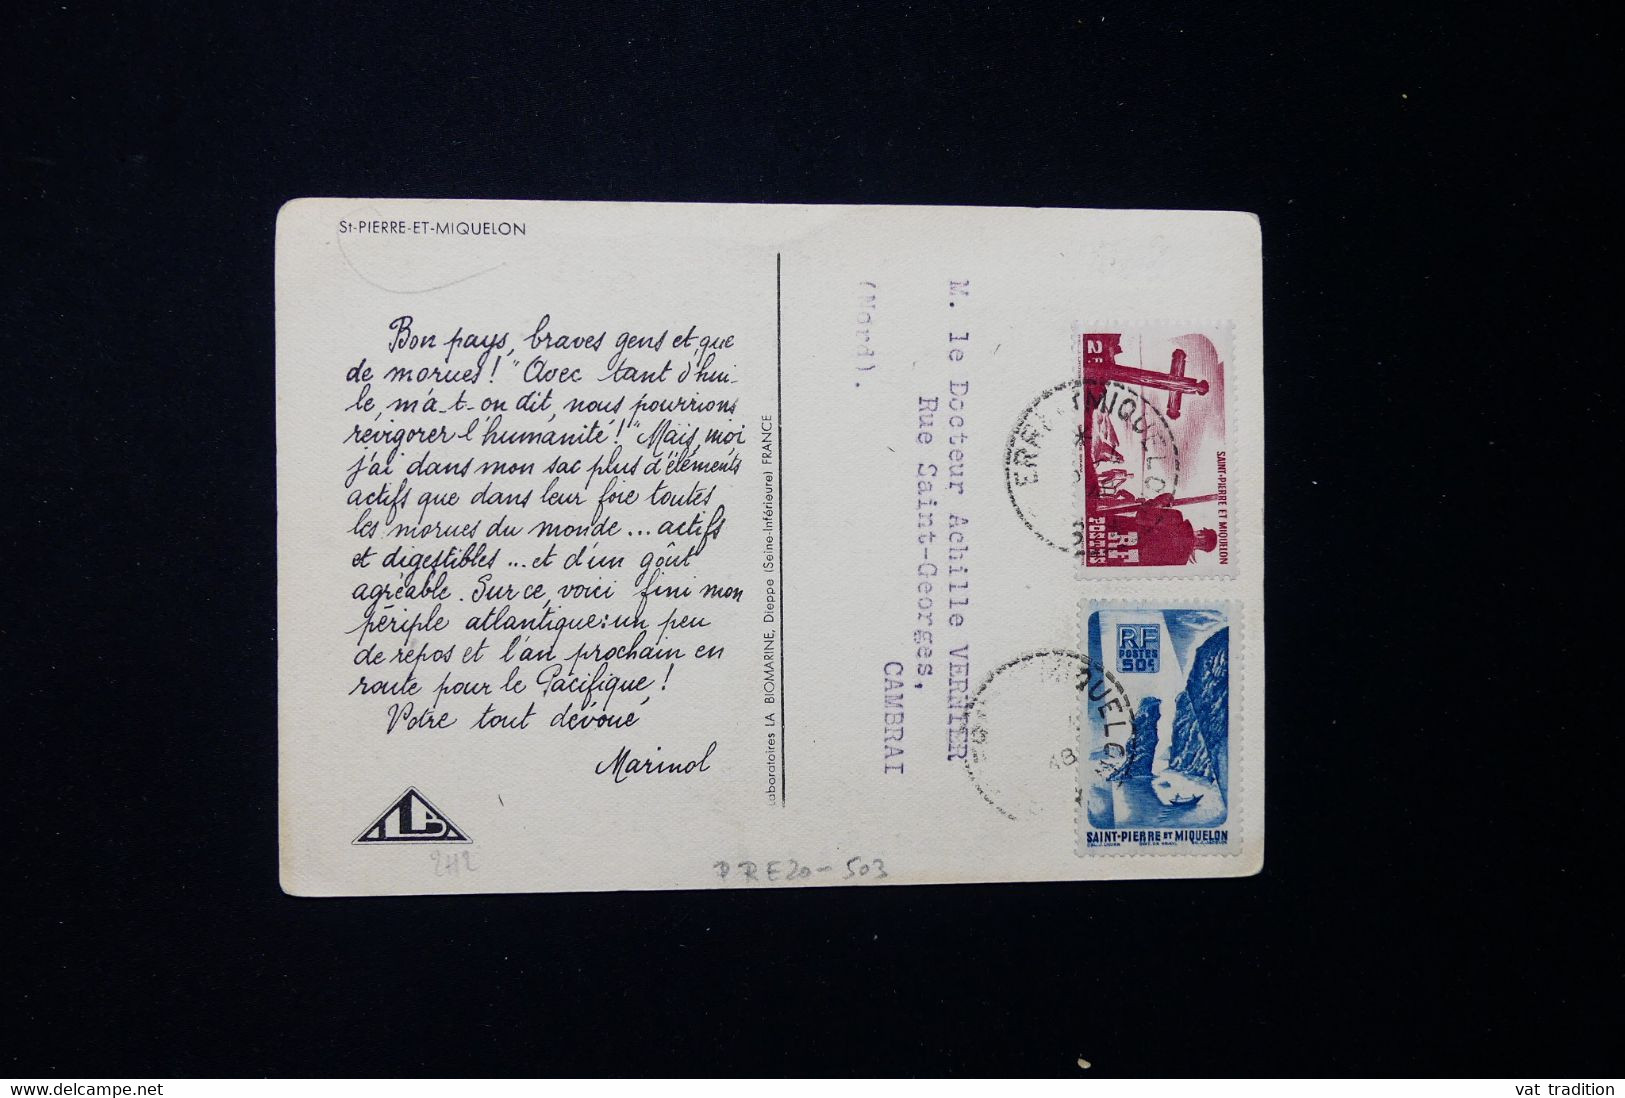 St-PIERRE-ET-MIQUELON
Bon pays, braves gens et que
de morues! "Avec tant d'hui-
le, m'a-t-on dit, nous pourrions
revigorer l'humanité!" Mais, moi
j'ai dans mon sac plus d'éléments
actifs que dans leur foie toutes
les morues du monde... actifs
et digestibles... et d'un goût
agréable. Sur ce, voici fini mon
périple atlantique: un peu
de repos et l'an prochain en
route pour le Pacifique!
Votre tout dévoué
Marinol
Laboratoires LA BIOMARINE, Dieppe (Seine-Inférieure) FRANCE
M. le Docteur Achille VERNIER
Rue Saint-Georges,
CAMBRAI
(Nord).
2F
SAINT-PIERRE ET MIQUELON
RF
POSTES
MIQUELON
RF
POSTES
50c
SAINT-PIERRE ET MIQUELON
MIQUELON
48
2H2
PRE20-503
www.delcampe.net
vat tradition